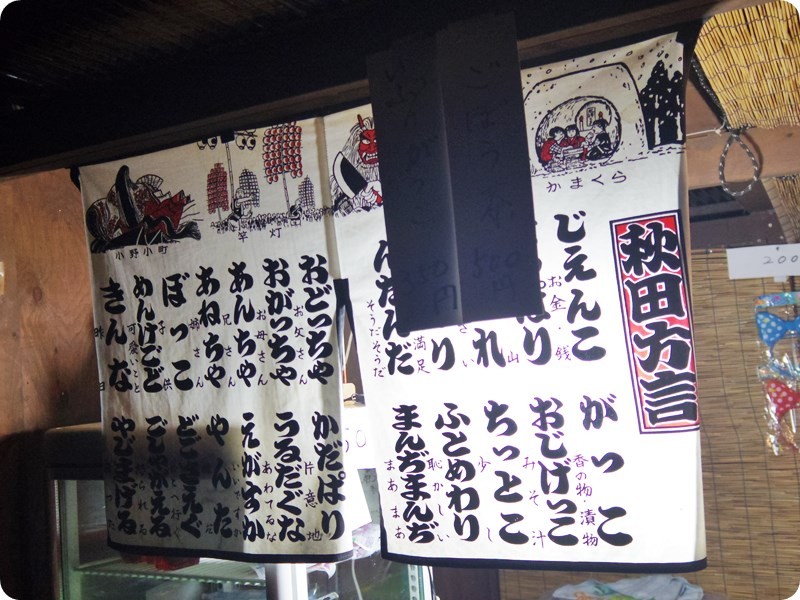 秋田方言
かまくら
竿灯
小野小町
じぇんこ
お金・銭
がっこ
香の物・漬物
おじげっこ
みそ汁
山
れ
ちっとこ
少し
り
満足
ふとめわり
恥かしい
んだんだ
そうだそうだ
まんぢまんぢ
まあまあ
おどっちゃ
お父さん
かだぱり
片意地
おがっちゃ
お母さん
うるだぐな
あわてるな
あんちゃ
兄さん
えがすか
いいですか
あねちゃ
姉さん
やんた
ぼっこ
子供
どこさえぐ
どこへ行く
めんけごど
可愛いこと
ごしゃがえる
きんな
昨日
やじまげる
500円
円
200